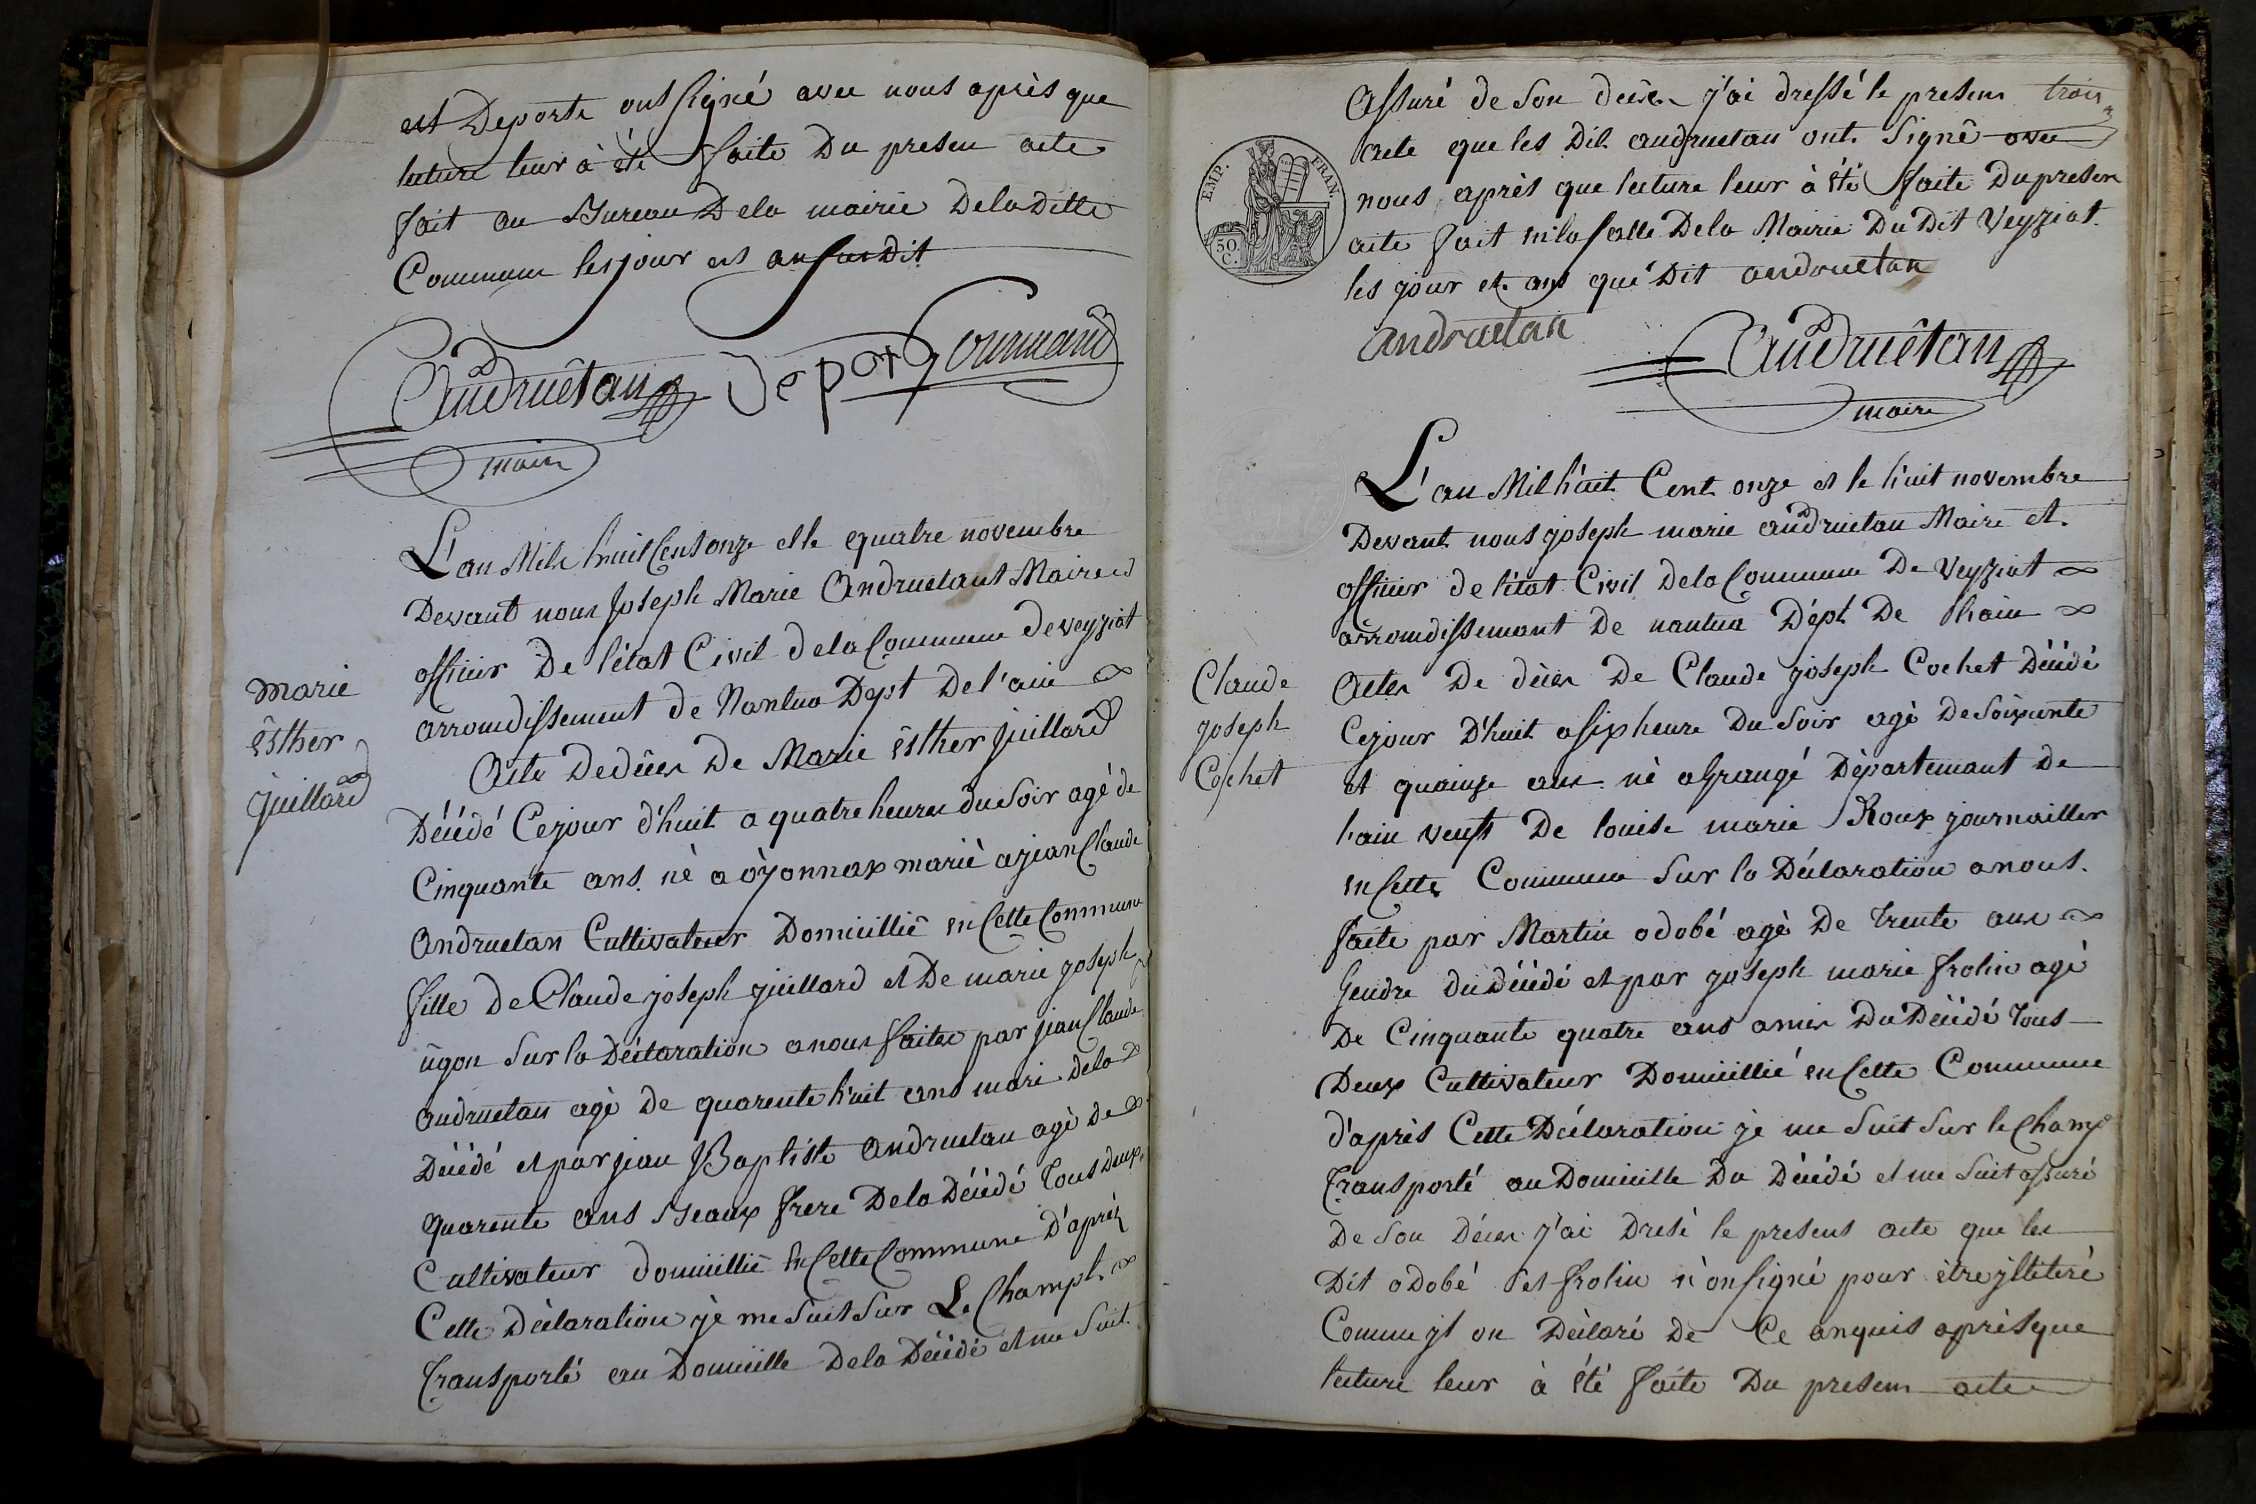 est Deporte ont signé avec nous après que
lecture leur à été faite Du presen acte
fait au Bureau Dela mairie Deladitte
Commune les jour et an susdit
Andruétan Deport Gourmand
maire
L'an Mile huit Cent onze et le quatre novembre
Devant nous Joseph Marie Andruetant Maire et
officier De l'état Civil dela Commune de veyziat
arromdissement de Nantua Dept De l'ain
Marie
Ésther
Juillard
Acte Dedéces De Marie Ésther juillard
Décédé Cejour d'huit a quatre heures du Soir agé de
Cinquante ans né a oÿonnax marié ajean Claude
Andruetan Cultivateur Domicillié en Cette Commune
fille de Claude joseph juillard et De marie joseph
ugon Sur la Déclaration anous faites par jean Claude
andruetan agé de quarente huit ans mari dela
Décédé et par jean Baptiste andruetan agé de
quarente ans Beaux frere Dela Décédé Tous deux
Cultivateur domicillié en Cette Commune D'aprèz
Cette Déclaration je me suit sur Le Champt
Transporté au Domicille Dela Décédé et me suit
Assuré de Son décès j'ai dressé le presens trois
acte que les Dit andruetan ont Signé avec
nous après que lecture leur à été faite Du presen
acte fait en la salle Dela Mairie Du Dit Veyziat
les jour et ans que Dit andruetan
EMP. FRAN.
50 C.
andruetan
Andruétan
maire
L'an Mil huit Cent onze et le huit novembre
Devant nous joseph marie andruetan Maire et
officier de l'état Civil dela Commune De Veyziat
arromdissemant De nantua Dépt De lhain
Claude
joseph
Cochet
Actes De déces De Claude joseph Cochet Décédé
Cejour D'huit a six heure Du Soir agé De soixente
et quainze ans né a Grangé Départemant De
l'ain veuft De louise marie Roux journailler
en Cette Commune Sur la Déclaration a nous
faite par Martin odobé agé De Trente ans
Gendre du décédé et par joseph marie frolin agé
De Cinquante quatre ans amis Du Décédé Tous
Deux Cultivateur Domicillié en Cette Commune
d'après Cette Déclaration je me Suit Sur le Champ
Transporté au Domicille Du Décédé et me Suit assuré
De Son Déces j'ai Dresé le presens acte que les
Dit odobé et frolin n'on signé pour être jlliteré
Comme jl on Déclaré De Ce anquis après que
lecture leur à été faite Du presens acte